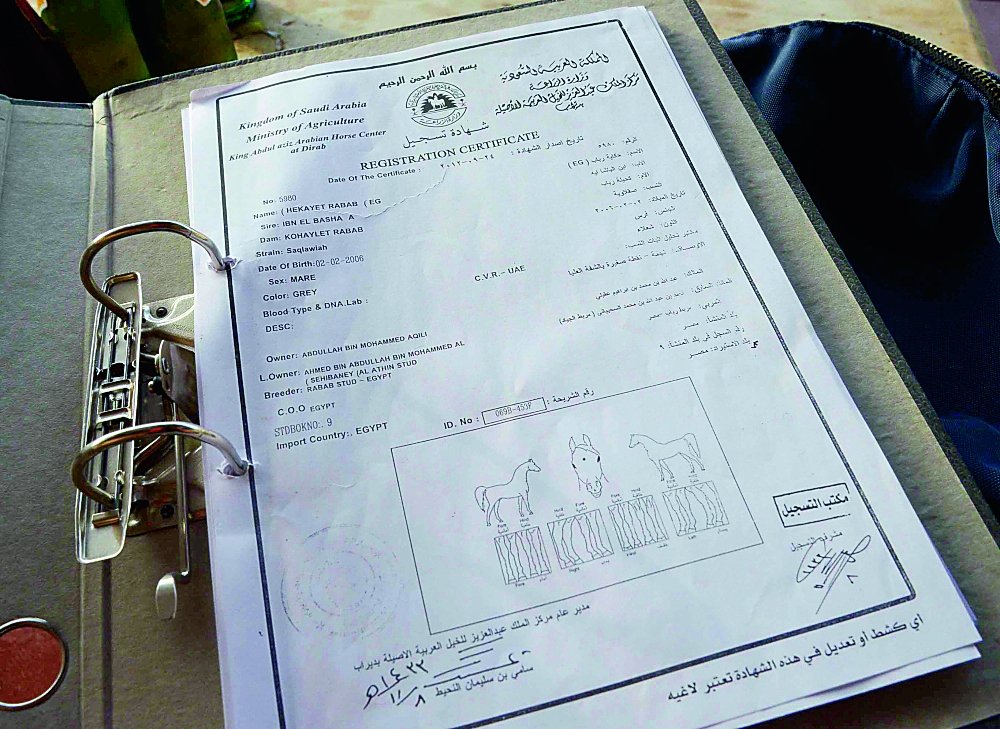 بسم الله الرحمن الرحيم
المملكة العربية السعودية
وزارة الزراعة
Kingdom of Saudi Arabia
Ministry of Agriculture
King Abdul aziz Arabian Horse Center
at Dirab
شهادة تسجيل
REGISTRATION CERTIFICATE
Date Of The Certificate :
٢٠١٢-٠٩-٢٤
تاريخ اصدار الشهادة :
No: 5980
الرقم: ٥٩٨٠
Name: ( HEKAYET RABAB ( EG
الاسم: حكاية رباب ( EG )
Sire: IBN EL BASHA A
Dam: KOHAYLET RABAB
الأم: كحيلة رباب
Strain: Saqlawiah
النسب: صقلاوية
Date Of Birth:02-02-2006
تاريخ الميلاد: ٢٠٠٦-٠٢-٠٢
Sex: MARE
الجنس: فرس
Color: GREY
اللون: شعلاء
Blood Type & DNA.Lab :
C.V.R.- UAE
DESC:
الاوصاف: نجمة - نقطة صغيرة بالشفة العليا
Owner: ABDULLAH BIN MOHAMMED AQILI
L.Owner: AHMED BIN ABDULLAH BIN MOHAMMED AL
( SEHIBANEY (AL ATHIN STUD
Breeder: RABAB STUD - EGYPT
المربي: مربط رباب -مصر
C.O.O EGYPT
بلد المنشأ: مصر
STDBOKNO:. 9
رقم السجل في بلد المنشأ: ٩
Import Country:, EGYPT
بلد الاستيراد: مصر
ID. No : 069B-455F
رقم الشريحة :
Fore
Hind
Fore
Hind
Fore
Hind
Fore
Hind
Fore
Right
Hind
Left
مكتب التسجيل
مشرف التسجيل
مدير عام مركز الملك عبدالعزيز للخيل العربية الاصيلة بديراب
سامي بن سليمان النحيط
أي كشط أو تعديل في هذه الشهادة تعتبر لاغيه